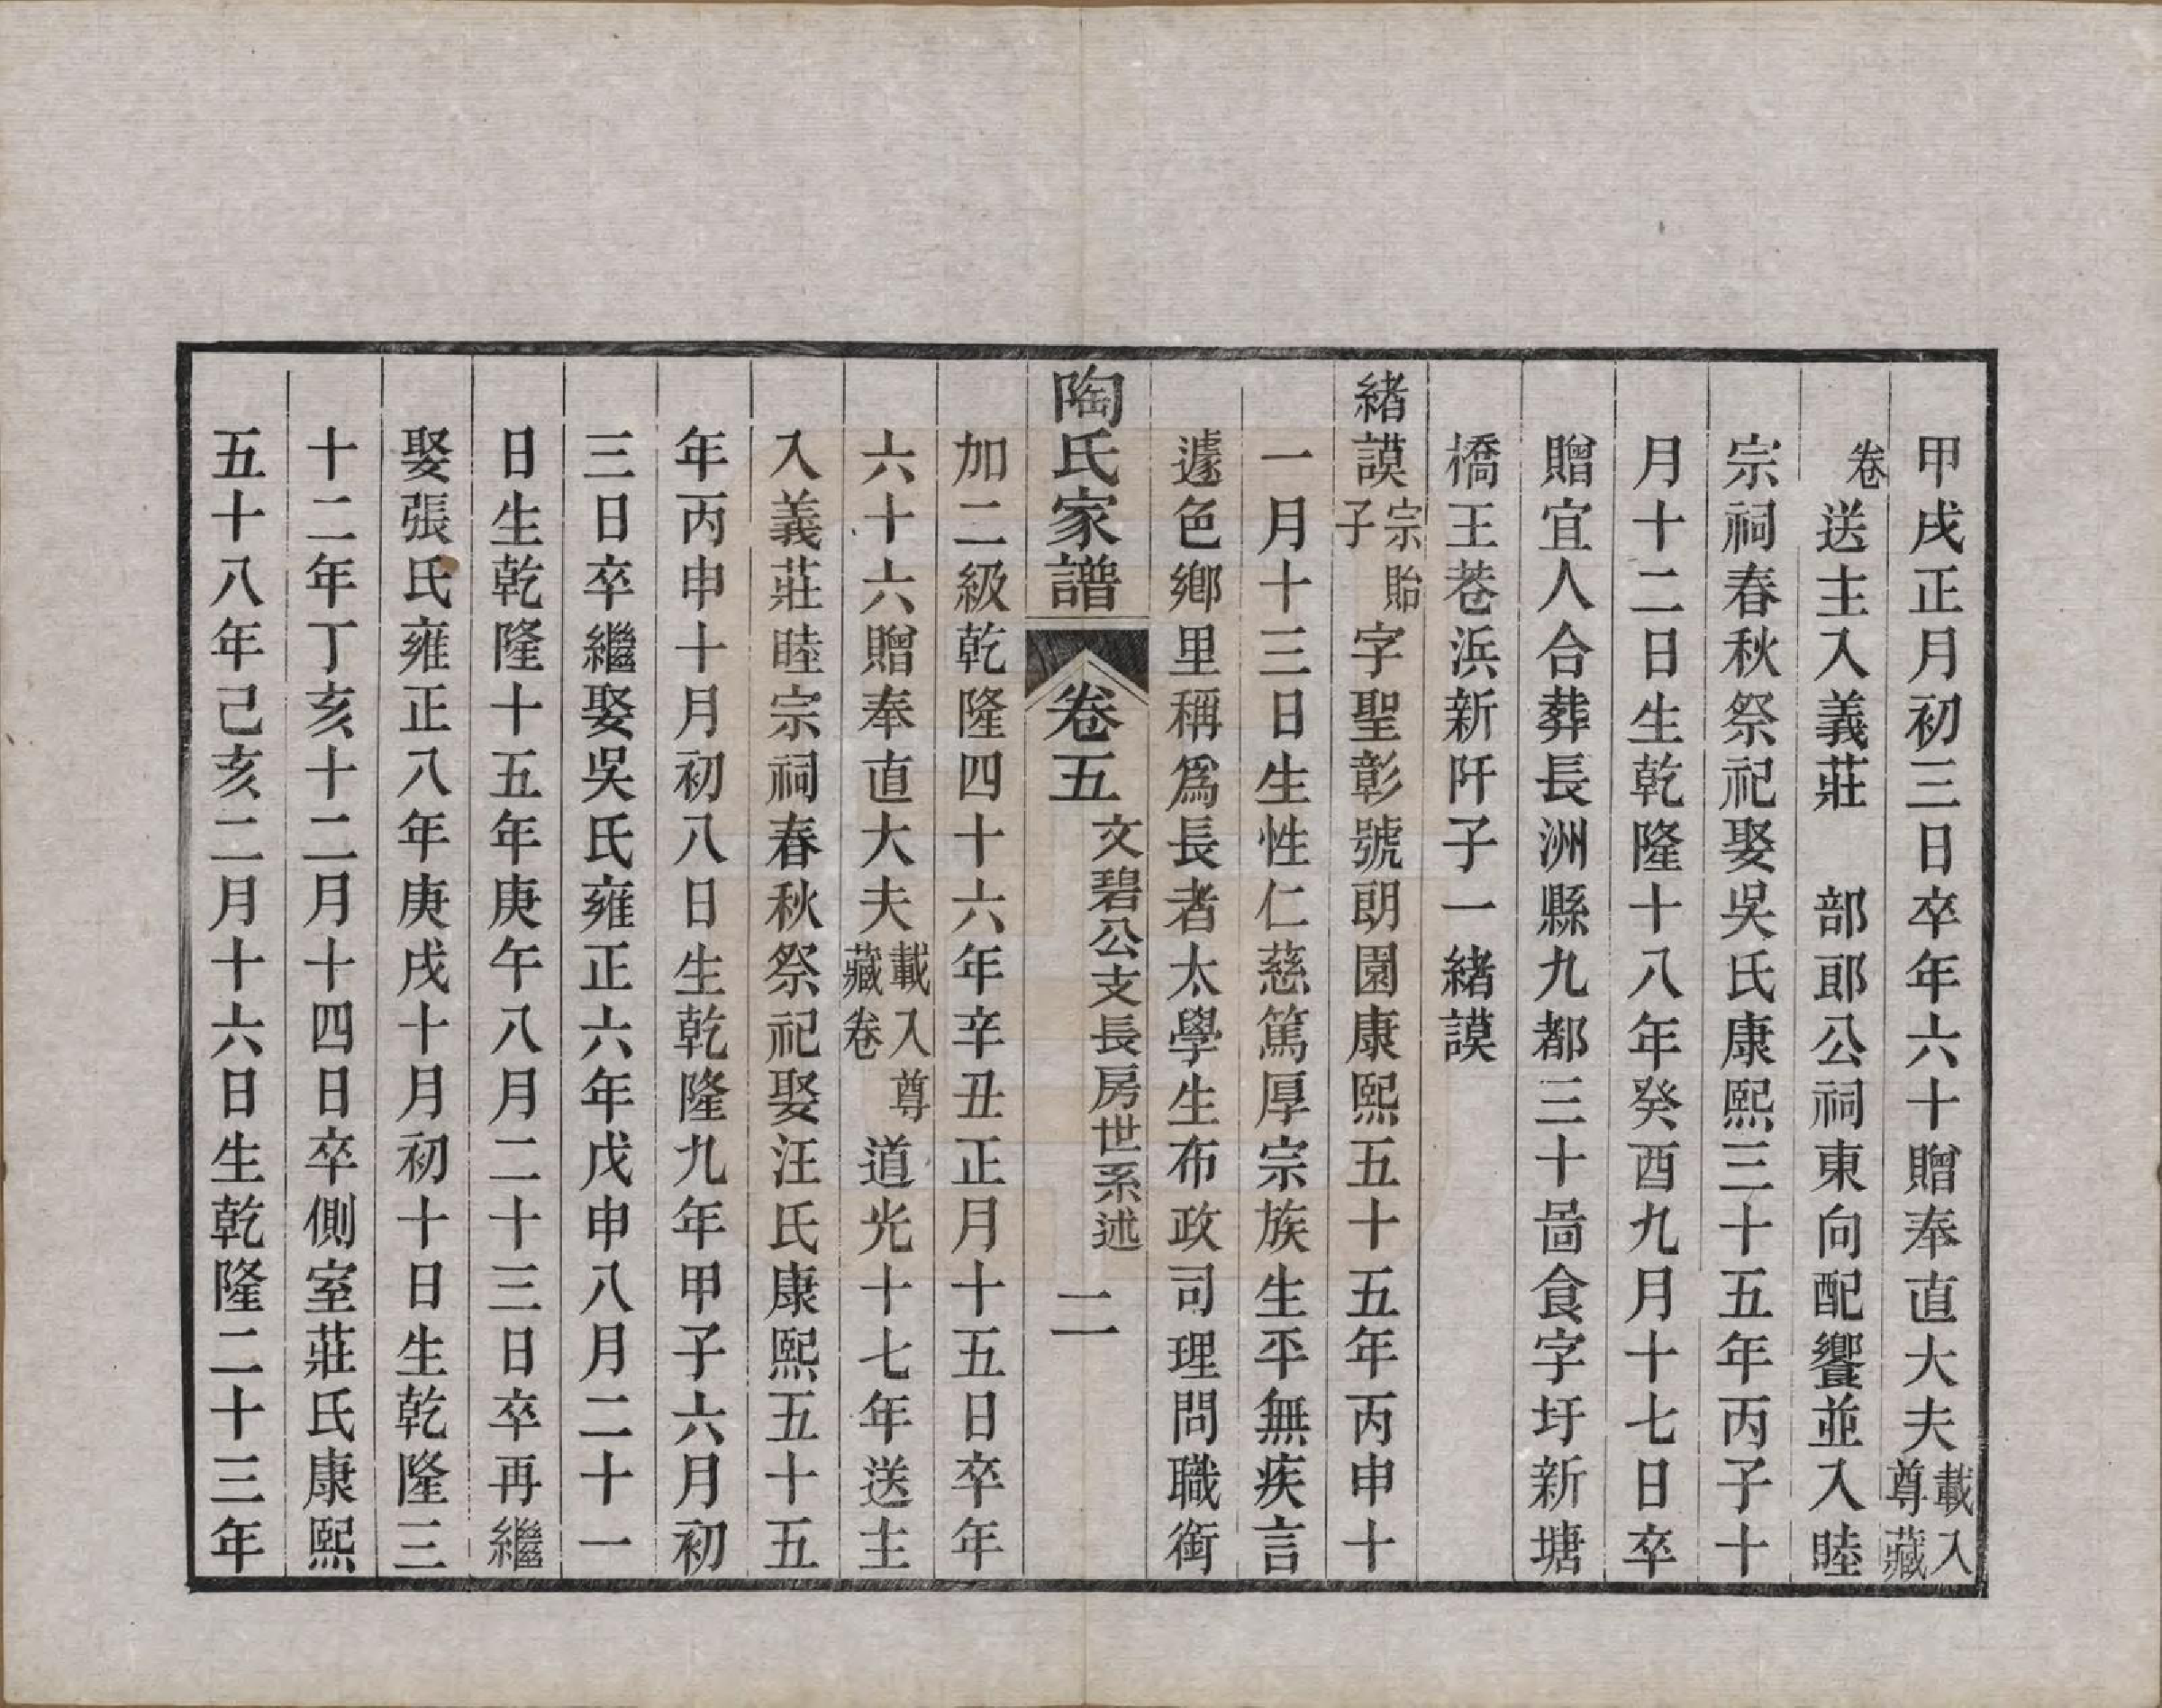 甲戌正月初三日卒年六十贈奉直大夫載入尊藏
卷送主入義莊　部郎公祠東向配饗並入睦
宗祠春秋祭祀娶吳氏康熙三十五年丙子十
月十二日生乾隆十八年癸酉九月十七日卒
贈宜人合葬長洲縣九都三十啚食字圩新塘
橋王巷浜新阡子一緒謨
緒謨宗貽子字聖彰號朗園康熙五十五年丙申十
一月十三日生性仁慈篤厚宗族生平無疾言
遽色鄉里稱爲長者太學生布政司理問職銜
陶氏家譜　卷五　文碧公支長房世系述　二
加二級乾隆四十六年辛丑正月十五日卒年
六十六贈奉直大夫載入尊藏卷道光十七年送主
入義莊睦宗祠春秋祭祀娶汪氏康熙五十五
年丙申十月初八日生乾隆九年甲子六月初
三日卒繼娶吳氏雍正六年戊申八月二十一
日生乾隆十五年庚午八月二十三日卒再繼
娶張氏雍正八年庚戌十月初十日生乾隆三
十二年丁亥十二月十四日卒側室莊氏康熙
五十八年己亥二月十六日生乾隆二十三年